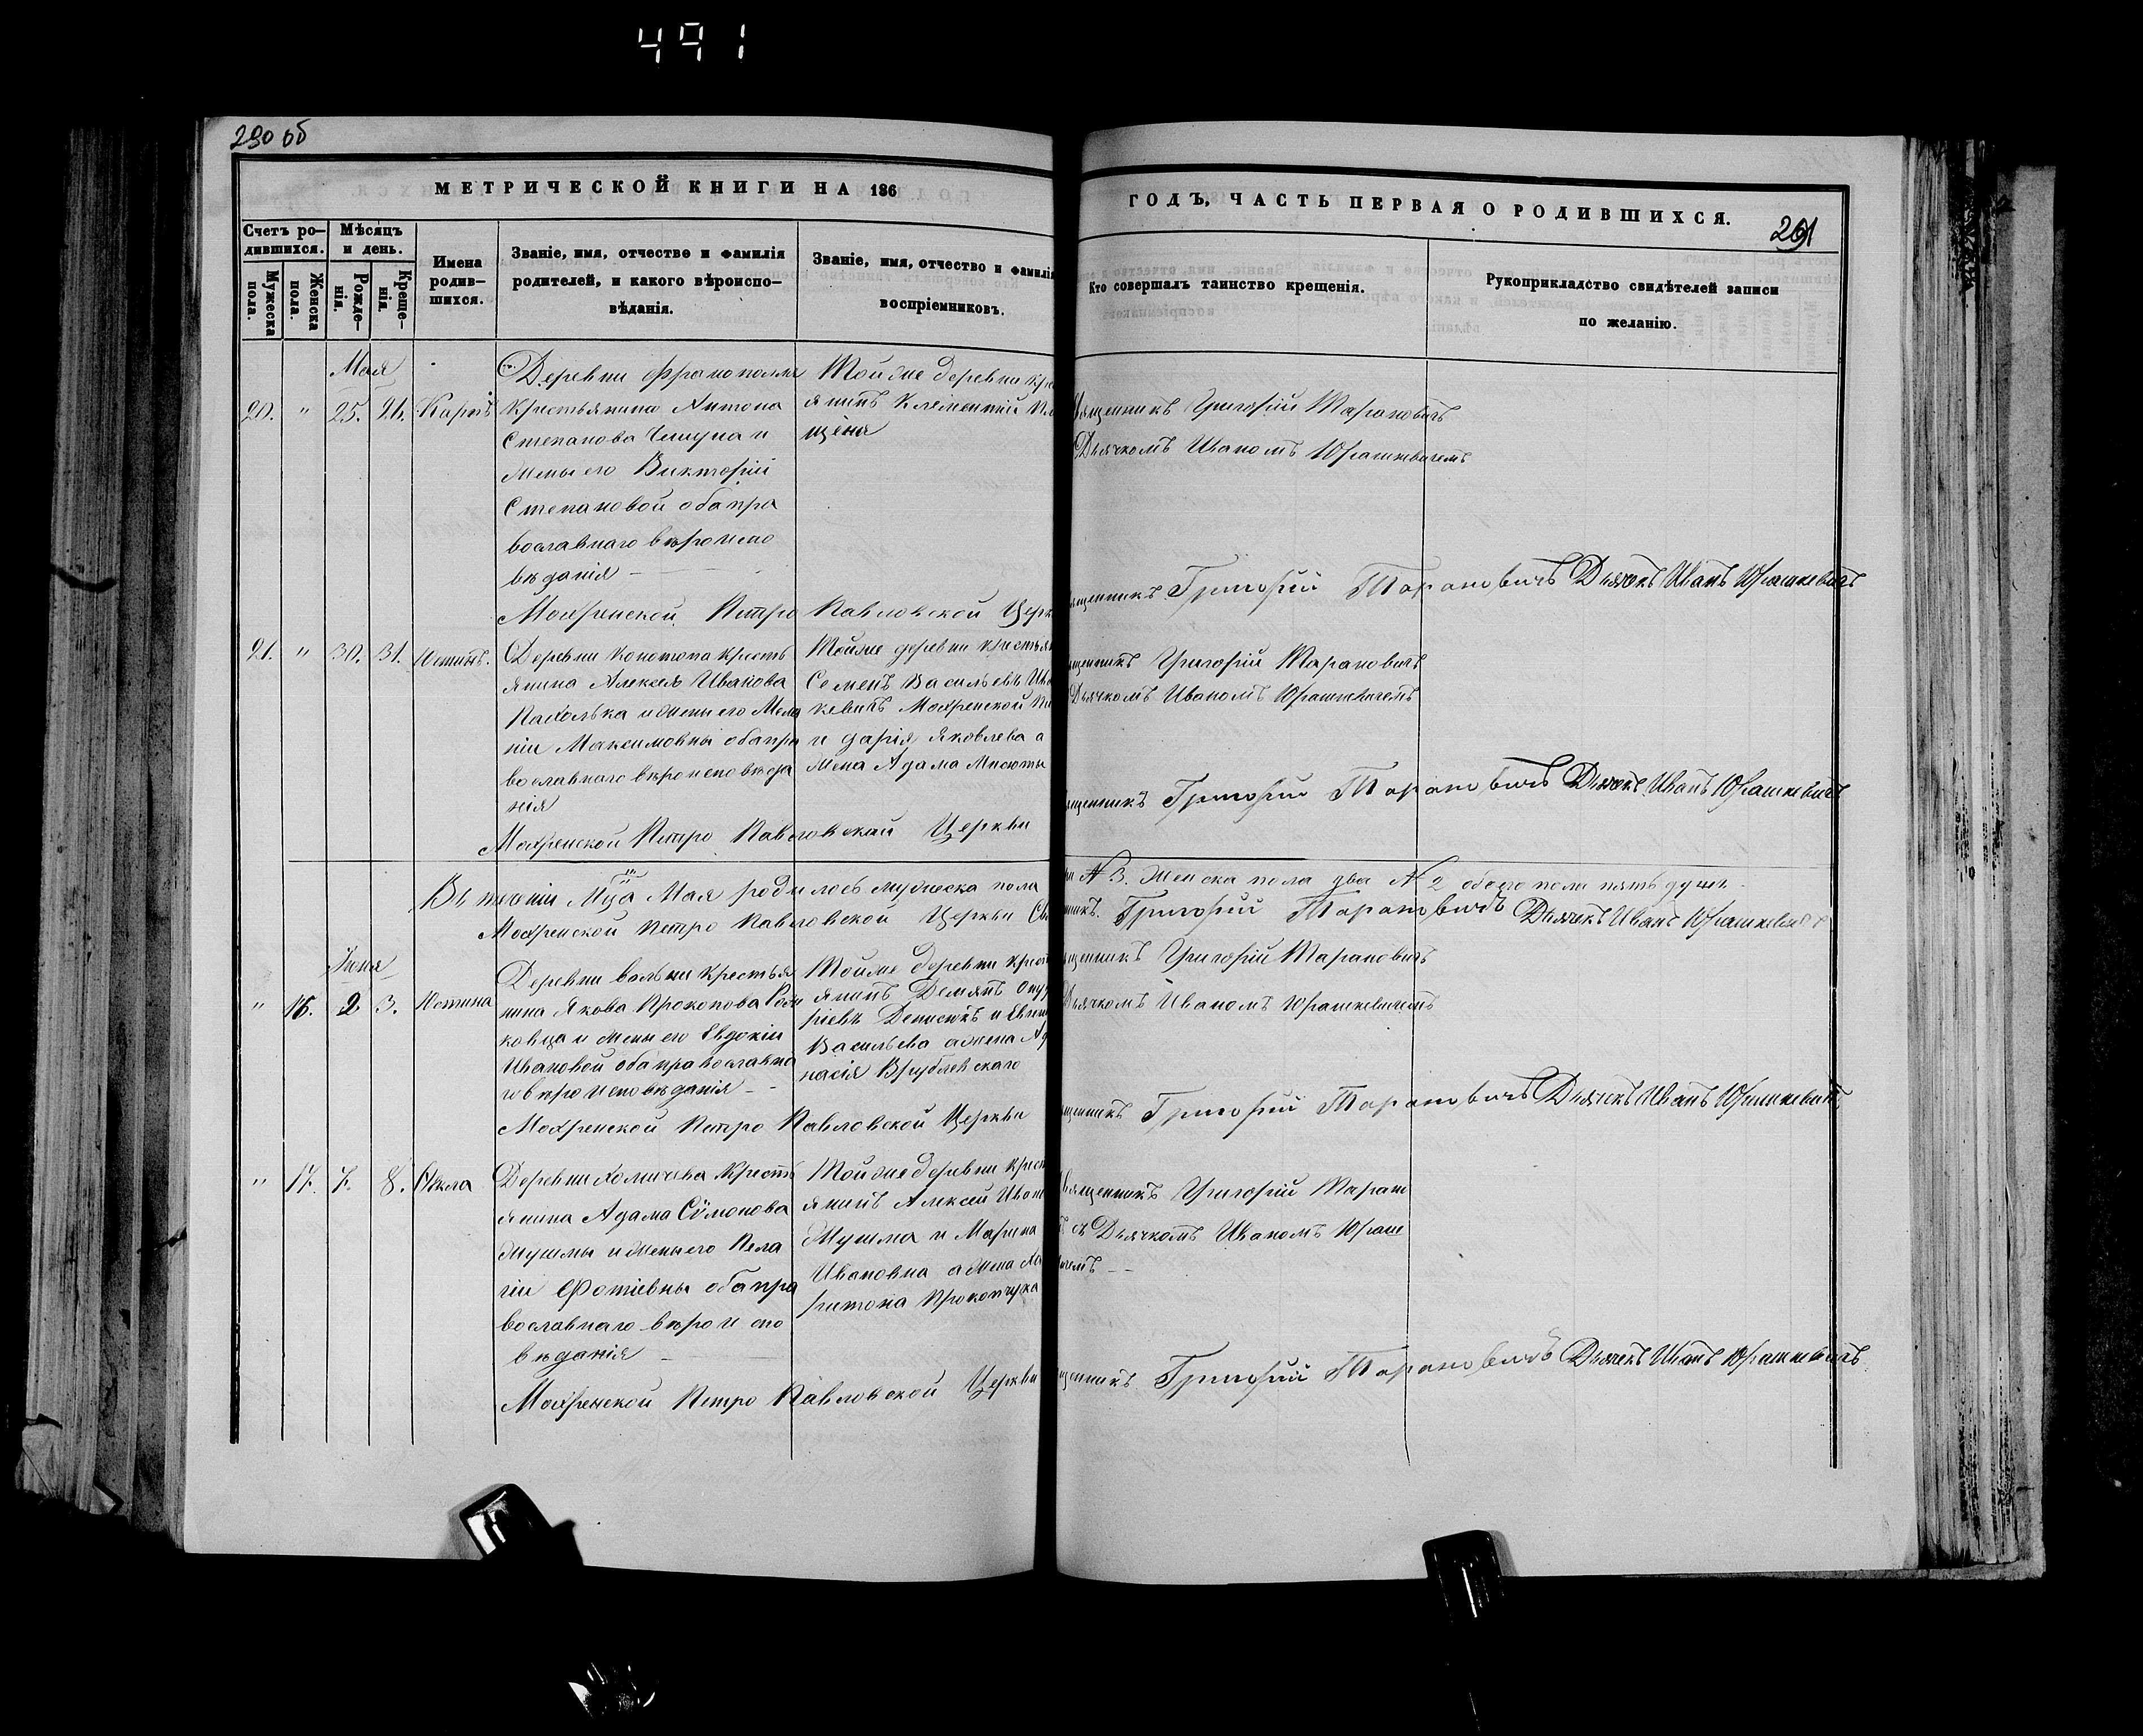 491
290 об
МЕТРИЧЕСКОЙ КНИГИ НА 186
ГОДЪ, ЧАСТЬ ПЕРВАЯ О РОДИВШИХСЯ.
291
Счетъ ро-
дившихся.
Мѣсяцъ
и день.
Мужеска
пола.
Женска
пола.
Рожде-
нія.
Креще-
нія.
Имена
родив-
шихся.
Званіе, имя, отчество и фамилія
родителей, и какого вѣроиспо-
вѣданія.
Званіе, имя, отчество и фамилія
воспріемниковъ.
Кто совершалъ таинство крещенія.
Рукоприкладство свидѣтелей записи
по желанію.
Мая
20. " 25. 26. Карпъ
Деревни Франополя
Крестьянина Антона
Степанова
жены его Викторіи
Степановой оба пра
вославнаго вѣроиспо
вѣданія
Тойже деревни кре
янинъ Климентій
щеня
Григорій Тарановичъ
Дьячкомъ Иваномъ Юрашкевичемъ
Мохренской Петро Павловской Церк
Григорій Тарановичъ Дьячекъ Иванъ Юрашкевичъ
21. " 30. 31. Юстинъ.
Деревни Конотопа Кресть
янина Алексея Иванова
Пахолька и жены его Мела
ніи Максимовны оба пра
вославнаго вѣроисповѣда
нія
Тойже деревни крестья
Семенъ Васильевъ
кевичъ Мохренской
и Дарія Яковлева а
жена Адама Мисюты
Григорій Тарановичъ
Дьячкомъ Иваномъ Юрашкевичемъ
Мохренской Петро Павловской Церкви
Григорій Тарановичъ Дьячекъ Иванъ Юрашкевичъ
Въ теченіи Мца Мая родилось мужеска пола
№ 3. Женска пола два № 2 обоего пола пять душъ
Мохренской Петро Павловской Церкви
Григорій Тарановичъ Дьячекъ Иванъ Юрашкевичъ
Іюня
" 16. 2 3. Юстина
Деревни Вольки Крестья
нина Якова Прокопова
ковца и жены его Евдокіи
Ивановой оба православна
го вѣроисповѣданія
Тойже деревни крест
янинъ Демянъ
ріевъ Денисюкъ и
Васильева а жена
насія Врублевскаго
Григорій Тарановичъ
Дьячкомъ Иваномъ Юрашкевичемъ
Мохренской Петро Павловской Церкви
Григорій Тарановичъ Дьячекъ Иванъ Юрашкевичъ
" 17. 7. 8. Ѳекла
Деревни Хомичева Кресть
янина Адама Сѵмонова
Мушмы и жены его Пела
гіи Фотіевны оба пра
вославнаго вѣроиспо
вѣданія
Тойже деревни крест
янинъ Алексей
Мушма и Марина
Ивановна а жена Ха
ритона Прокопчука
Священникъ Григорій Таран
съ Дьячкомъ Иваномъ Юраш
Мохренской Петро Павловской Церкви
Григорій Тарановичъ Дьячекъ Иванъ Юрашкевичъ